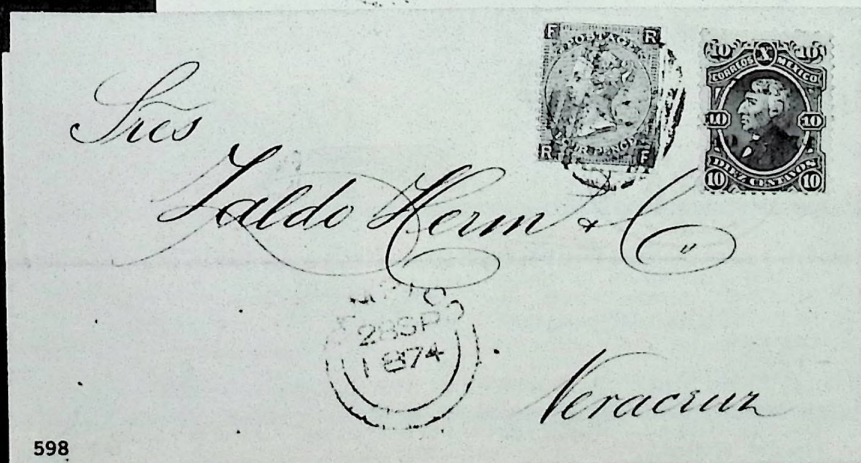 F R
POSTAGE
FOUR PENCE
R F
10 X 10
CORREOS MEXICO
10 10
10 DIEZ CENTAVOS 10
Sres
Zaldo Herm & C"
28 SP
1874
Veracruz
598